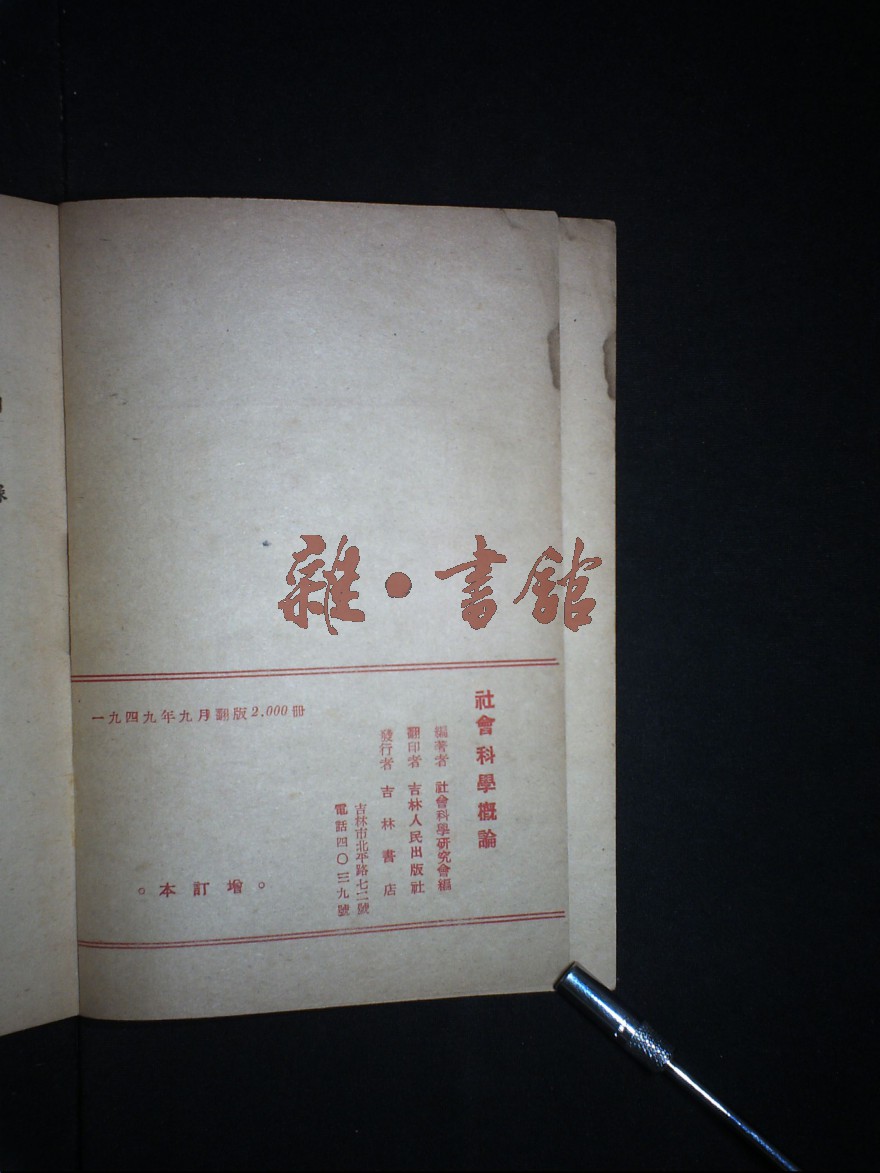 雜·書館
社會科學概論
編著者 社會科學研究會編
翻印者 吉林人民出版社
發行者 吉林書店
吉林市北平路七二號
電話四〇三九號
一九四九年九月翻版2.000冊
。本訂增。